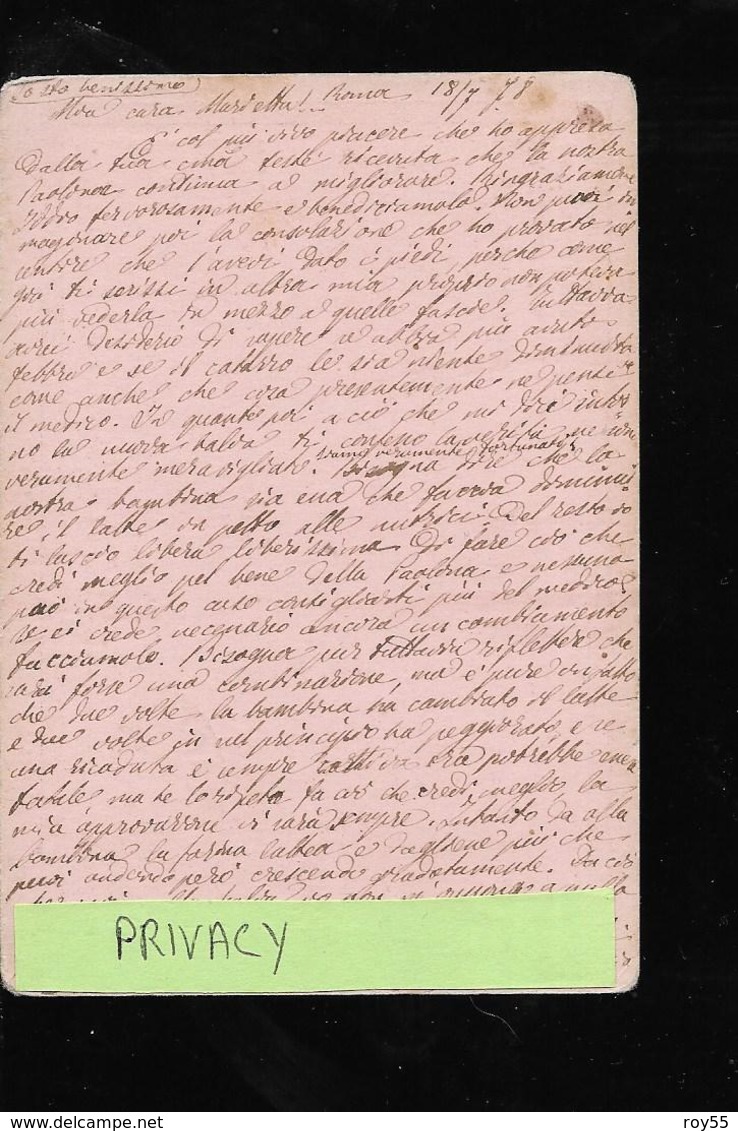 Io sto benissimo
Mia cara Marietta! Roma 18/7 78
È col più vivo piacere che ho appreso
dalla tua cma testè ricevuta che la nostra
Paolina continua a migliorare. Ringraziamone
Iddio fervorosamente e benediciamolo. Non puoi im
maginare poi la consolazione che ho provato nel
sentire che l'avevi dato i piedi, perchè come
già ti scrissi in altra mia proprio non poteva
più vederla in mezzo a quelle fascie. Tuttavia
avrei desiderio di sapere se abbia più avuto
febbre e se il catarro le sia niente diminuito
come anche che cosa presentemente ne pensi
il medico. In quanto poi a ciò che mi dici intor
no la nuova balia ti confesso la verità ne sono
veramente meravigliato. siamo veramente sfortunati
Bisogna dire che la
nostra bambina sia ena che faccia diminui
re il latte in petto alle nutrici. Del resto io
ti lascio libera liberissima di fare ciò che
credi meglio pel bene della Paolina e nessuno
può in questo caso consigliarti più del medico
Se ci crede necessario ancora un cambiamento
facciamolo. Bisogna pur tuttavia riflettere che
sarà forse una combinazione, ma è pure un fatto
che due volte la bambina ha cambiato il latte
e due volte in sul principio ha peggiorato, e se
una ricaduta è sempre cattiva ora potrebbe esser
fatale, ma te lo ripeto fa ciò che credi meglio la
mia approvazione vi sarà sempre. Intanto da alla
bambina la farina lattea e dagliene più che
puoi andando però crescendo gradatamente. Da ciò
PRIVACY
roy55